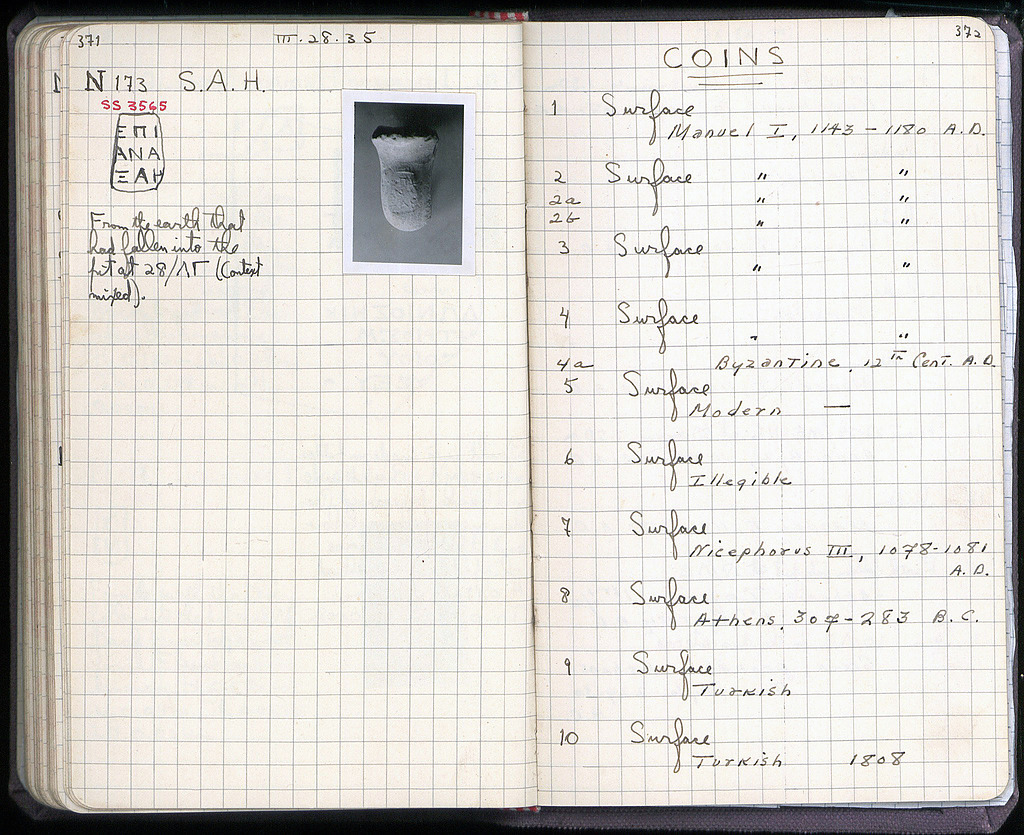 371
III.28.35
N 173 S.A.H.
SS 3565
ΕΠΙ
ΑΝΑ
ΞΑΗ
From the earth that
had fallen into the
pit at 28/ΛΓ (Context
mixed).
372
COINS
1 Surface
Manuel I, 1143 - 1180 A.D.
2 Surface " "
2a " "
2b " "
3 Surface
" "
4 Surface
" "
4a Byzantine, 12th Cent. A.D.
5 Surface
Modern —
6 Surface
Illegible
7 Surface
Nicephorus III, 1078-1081
A.D.
8 Surface
Athens, 307-283 B.C.
9 Surface
Turkish
10 Surface
Turkish 1808